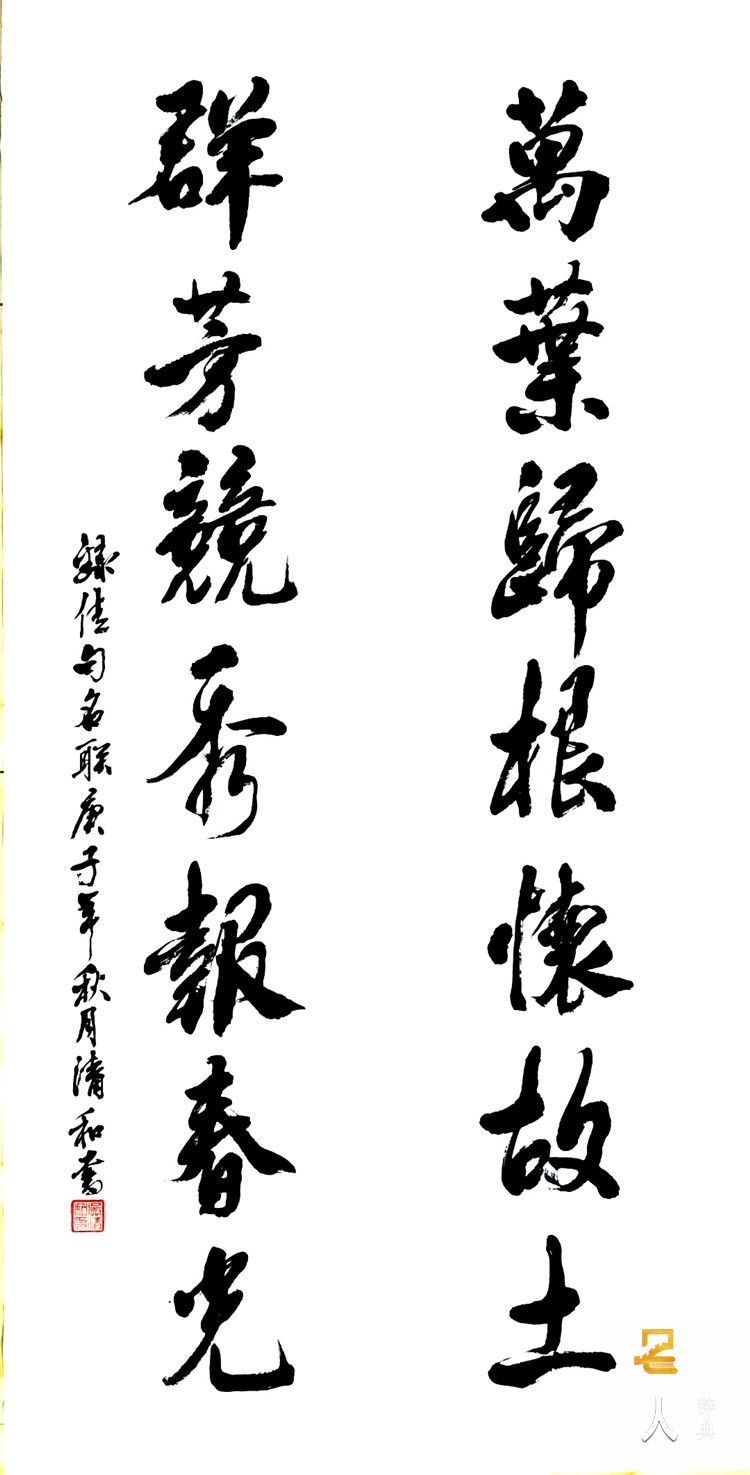 萬葉歸根懷故土
群芳競秀報春光
録佳句名联庚子年秋月清和書
名人
辞典